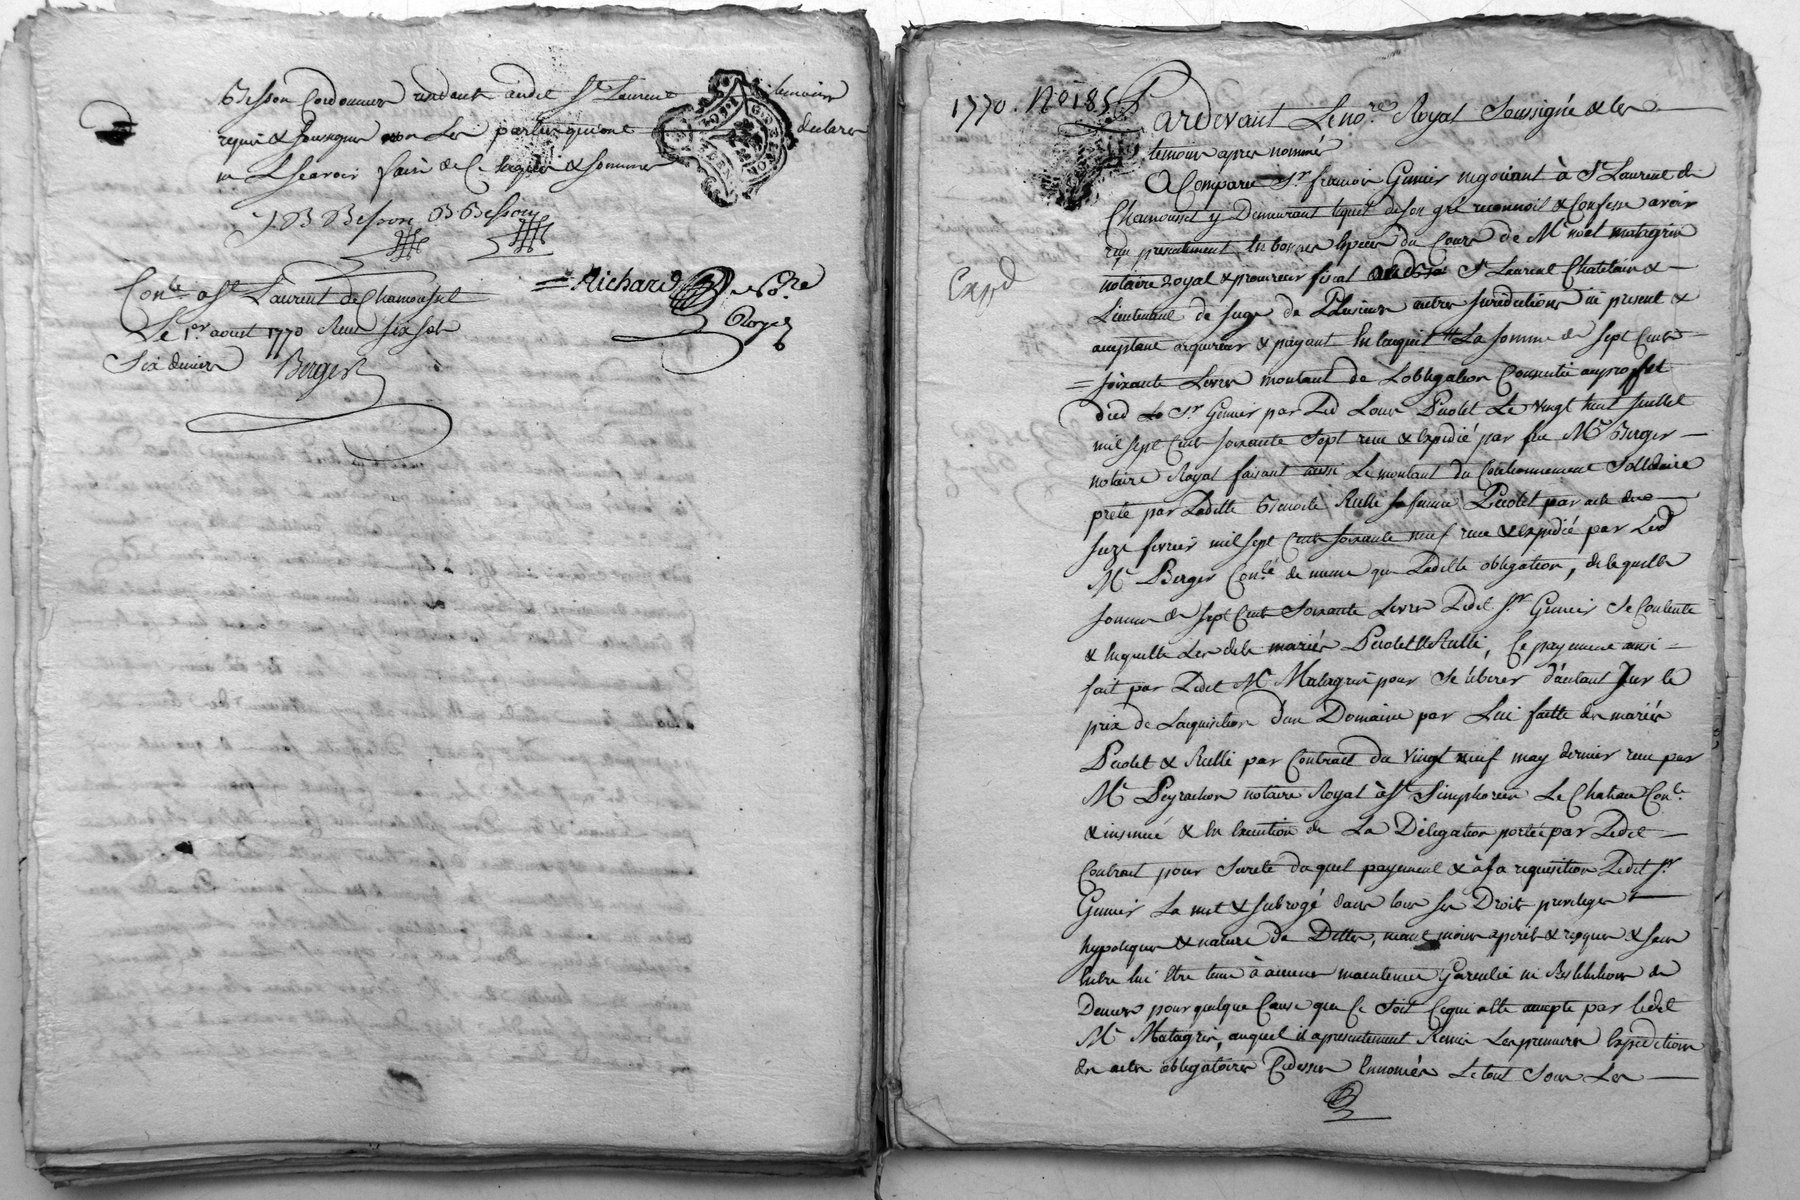 Besson Cordonnier residants audit St Laurent temoins
requis & soussignés non Les parties qui ont declaré
ne Scavoir faire de ce enquis & sommés
J B Besson B Besson
Conlé a St Laurent de Chamousset
Le 1er aout 1770 Reçu six sols
Six deniers Berger
Richard Nore
Royal
1770. No 185
Expd
Pardevant Le no.re Royal Soussigné & les
temoins apres nommés
A Comparu Sr francois Gimier negotiant à St Laurent de
Chamousset y Demeurant lequel de son gré reconnoit & Confesse avoir
reçu presentement En bonnes Especes du Cours de Me noel matagrin
notaire Royal & procureur fiscal dudit St Laurent Chatelain &
Lieutenant de Juge de Plusieurs autres Jurisdictions icy present &
acceptant acquereur & payant En lacquit La somme de sept Cents
soixante Livres montant de Lobligation Consentie au proffit
dud Sr Gimier par Led Louis Pirolet Le vingt huit Juillet
mil sept Cent soixante Sept reçu & Expedié par feu Me Berger
notaire Royal faisant aussi Le montant du Cautionnement Sollidaire
preté par Ladille Benoite Rullé sa femme Pirolet par acte du
Seize fevrier mil sept Cent soixante neuf reçu & expedié par Led
Me Berger Conlé de meme que Laditte obligation, de laquelle
somme de sept Cent Soixante Livres Ledit Sr Gimier Se Contente
& En quitte Les dits mariés Pirolet & Rullé, Ce payement ainsi
fait par Ledit Me Matagrin pour Se liberer d'autant sur le
prix de Lacquisition d'un Domaine par Lui faitte des mariés
Pirolet & Rullé par Contract du vingt neuf may dernier reçu par
Me Peyrachon notaire Royal à St Simphorien Le Chateau Conlé
& insinué & En Execution de La Délegation portée par Ledit
Contract pour Sureté duquel payement & à sa requisition Ledit Sr
Gimier La mis & subrogé dans tous ses Droits privileges
hypoteques & nature de Dettes, mais moins aperils & risques & sans
Entre lui Etre tenu à aucune maintenue Garentie ni Restitution de
Deniers pour quelque Cause que Ce Soit Cequi a été accepté par ledit
Me Matagrin, auquel il a presentement Remis Les premieres Expeditions
des actes obligatoires Cidessus Ennoncés Le tout Sous Les